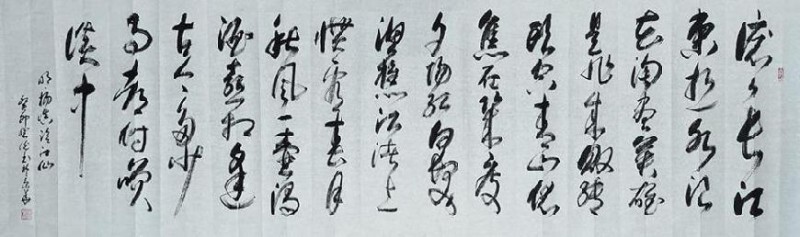 滚々长江
东逝水浪
花淘尽英雄
是非成败转
头空青山依
旧在几度
夕阳红白发
渔樵江渚上
惯看春月
秋风一壶浊
酒喜相逢
古今多少
事都付笑
谈中
明杨慎临江仙
癸卯